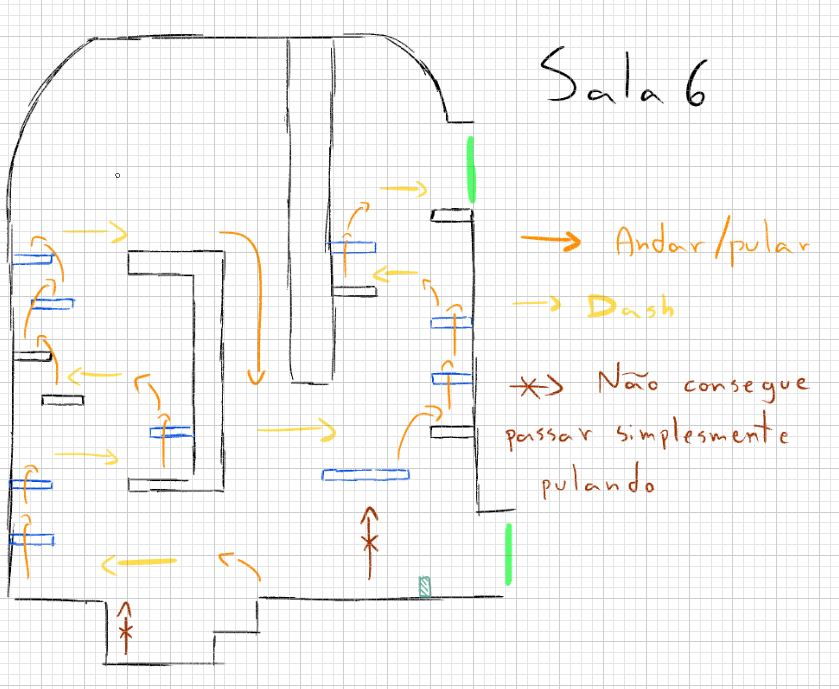 Sala 6
Andar/pular
Dash
Não consegue
passar simplesmente
pulando